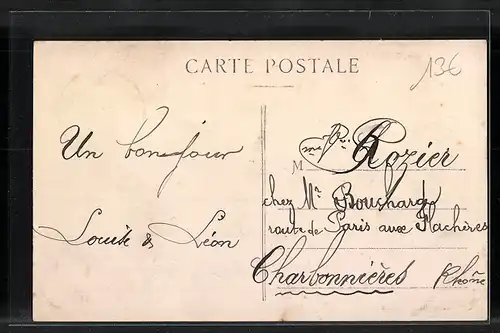 CARTE POSTALE
13€
Un bonjour
Louise & Léon
M
Rozier
chez Mr Bouchard
route de Paris aux Flachères
Charbonnières Rhône